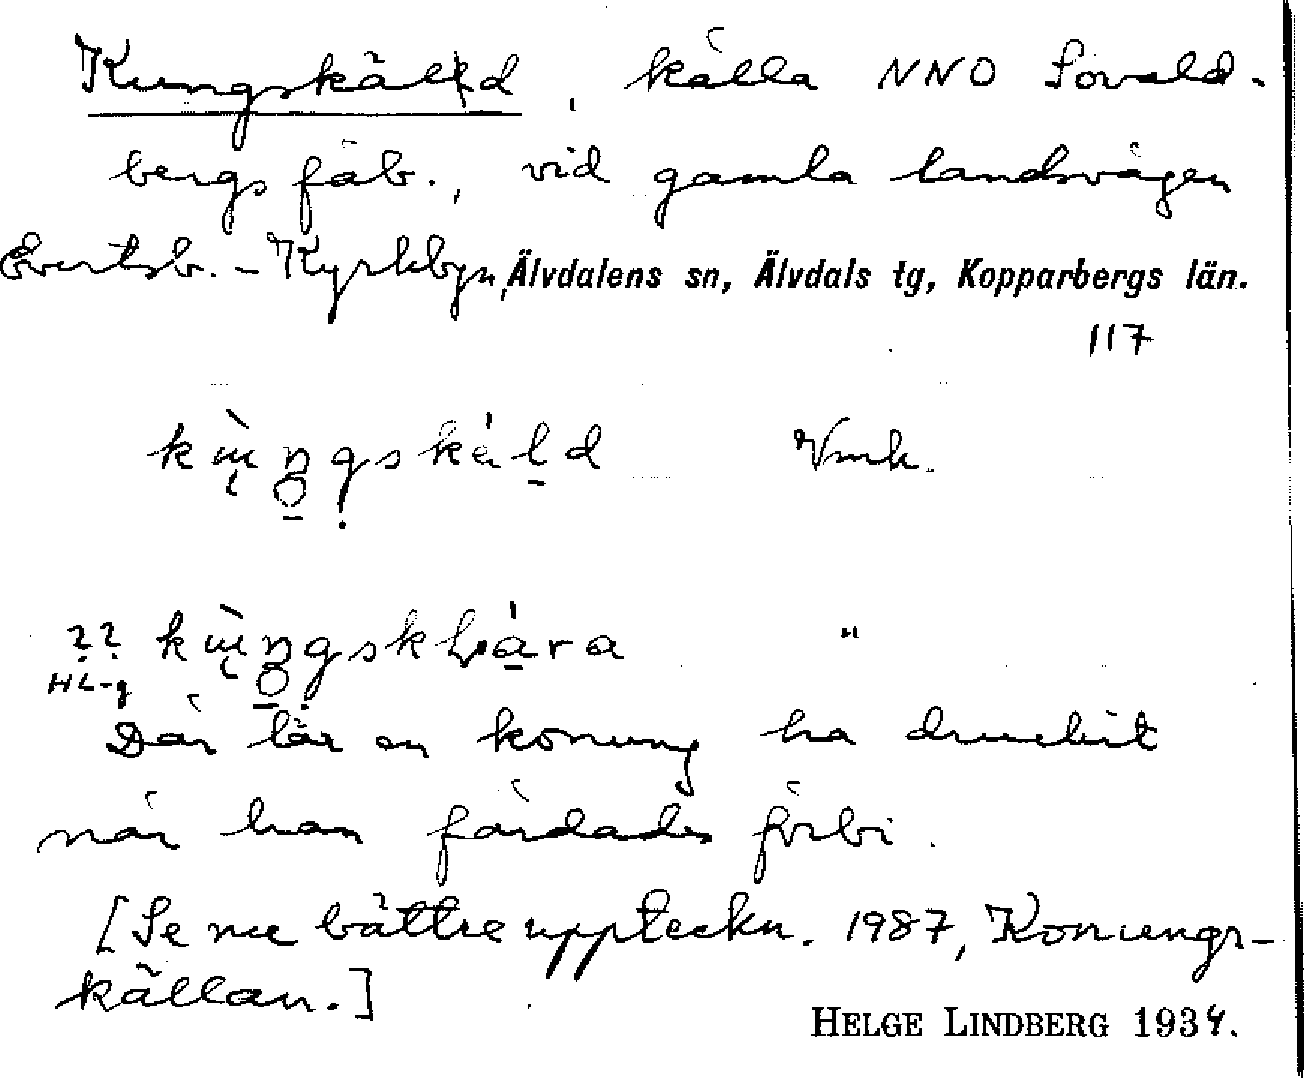 Kungskälld, källa NNO Lövald-
bergs fäb., vid gamla landsvägen
Evertsb. - Kyrkbyn, Älvdalens sn, Älvdals tg, Kopparbergs län.
117
Vmh.
?? "
HL-g
Där lär en konung ha druckit
när han färdades förbi.
[Se nu bättre uppteckn. 1987, Konungs-
källan.]
HELGE LINDBERG 1934.